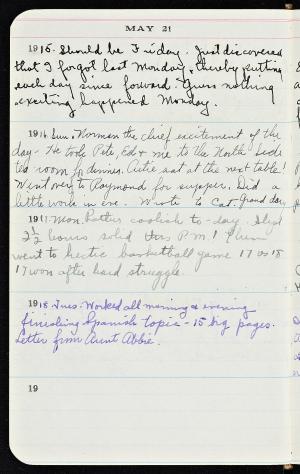 MAY 21
1915. Should be Friday. Just discovered
that I forgot last Monday, thereby putting
each day since forward. Guess nothing
exciting happened Monday.
1916 Sun. Norman the chief excitement of the
day - He took Pete, Ed & me to the North
room for dinner. sat at the next table!
Went over to Raymond for supper. Did a
little work in eve. Wrote to Cat. Grand day
1917. Mon. Rather coolish to-day. Slept
2½ hours solid this P.M.!
went to hectic basketball game 17 vs 18
17 won after hard struggle.
1918. Tues. Worked all morning & evening
finishing Spanish topic - 15 big pages.
Letter from Aunt Abbie.
19